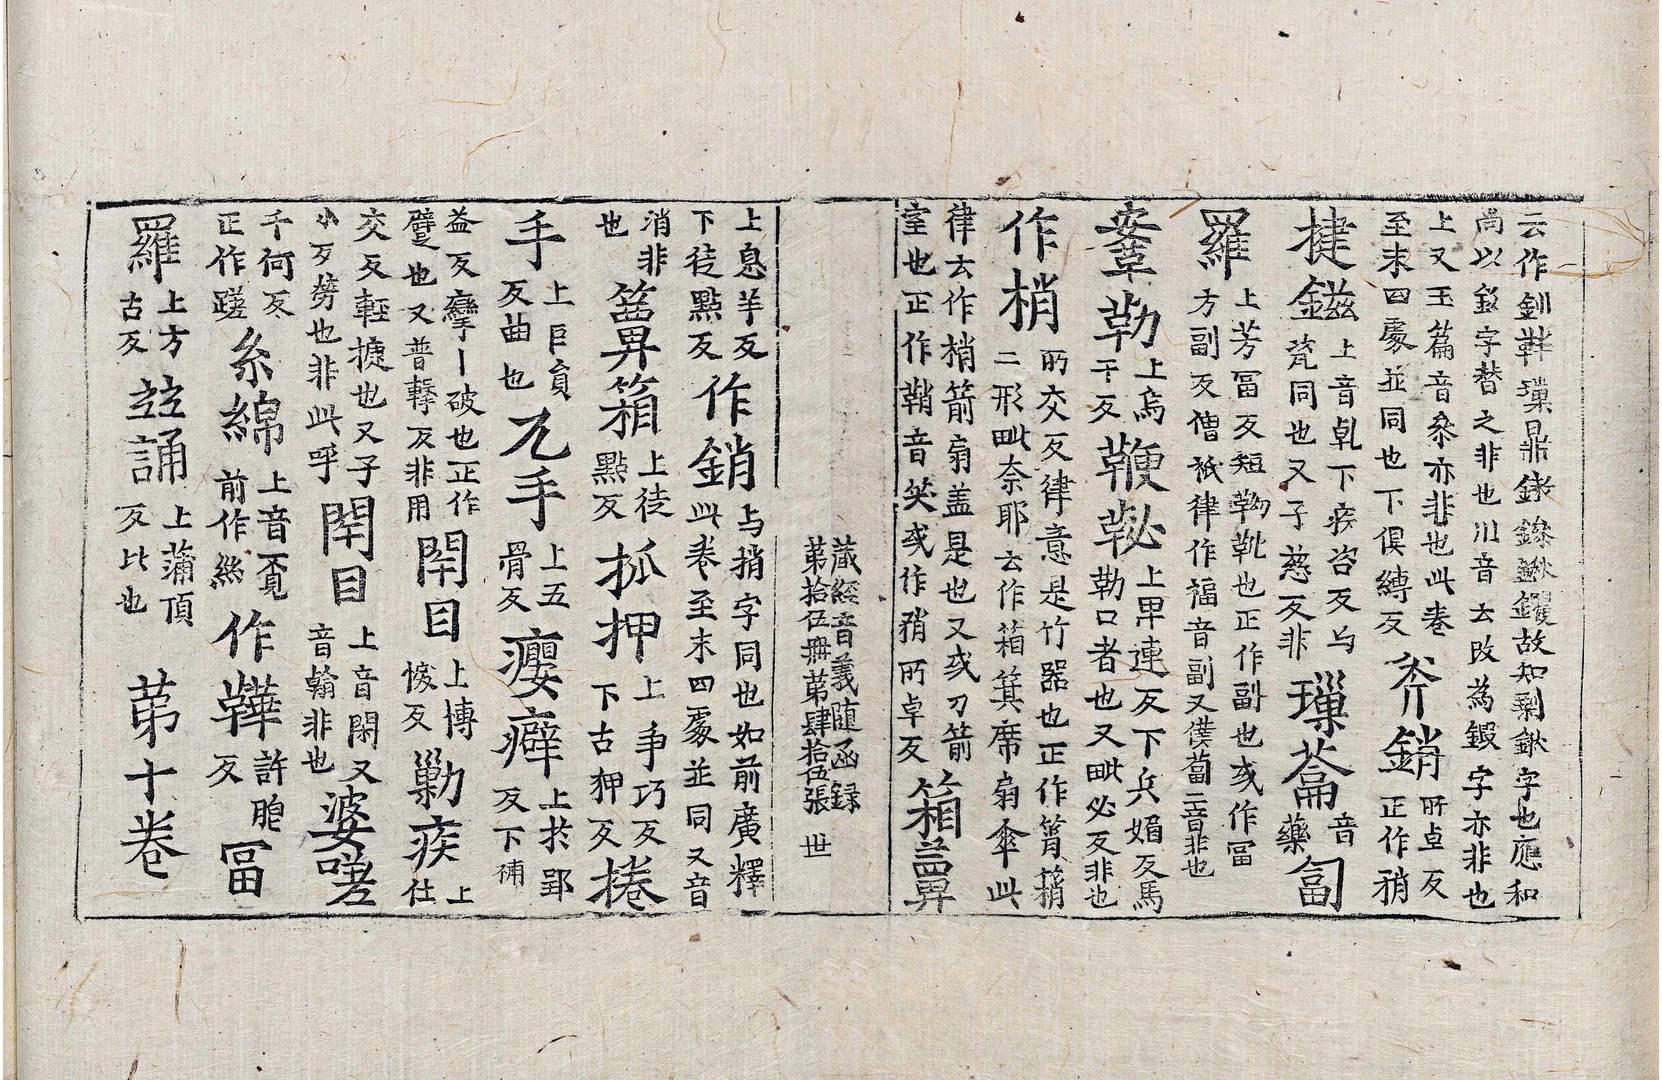 云作釧鞾璅鼎鐰鏒鍬钁故知剩鍬字也應和
尚以鈠字替之非也川音去攺為鍜字亦非也
上又玉篇音叅亦非也此卷
至末四處並同也下俱縛反
斧銷
所卓反
正作矟
揵鎡
上音乹下疾咨反与
瓷同也又子慈反非
璅蘥
音
藥
匐
羅
上芳冨反短靿靴也正作副也或作冨
方副反僧祇律作福音副又僕蔔二音非也
䩺勒
上烏
干反
鞭䩛
上卑連反下兵媚反馬
勒口者也又毗必反非也
作梢
所交反律意是竹器也正作筲䈰
二形毗奈耶云作箱箕席扇傘此
律云作梢箭扇盖是也又或刀箭
室也正作鞘音笑或作矟所卓反
箱𥱼
藏經音義随函録
第拾伍冊第肆拾伍張 世
上息羊反
下徒點反
作銷
与捎字同也如前廣釋
此卷至末四處並同又音
消非
也
𥱼箱
上徒
點反
抓押
上爭巧反
下古狎反
捲
手
上巨員
反曲也
兀手
上五
骨反
癭癖
上扵郢
反下補
益反癴丨破也正作
躄也又普擊反非用
閈目
上博
悷反
勦疾
上
仕
交反輕㨗也又子
小反勞也非此呼
閈目
上音閑又
音翰非也
婆嗟
千何反
正作蹉
糸綿
上音覔
前作絲
作鞾
許肥
反
冨
羅
上方
古反
並誦
上蒲頂
反比也
苐十卷